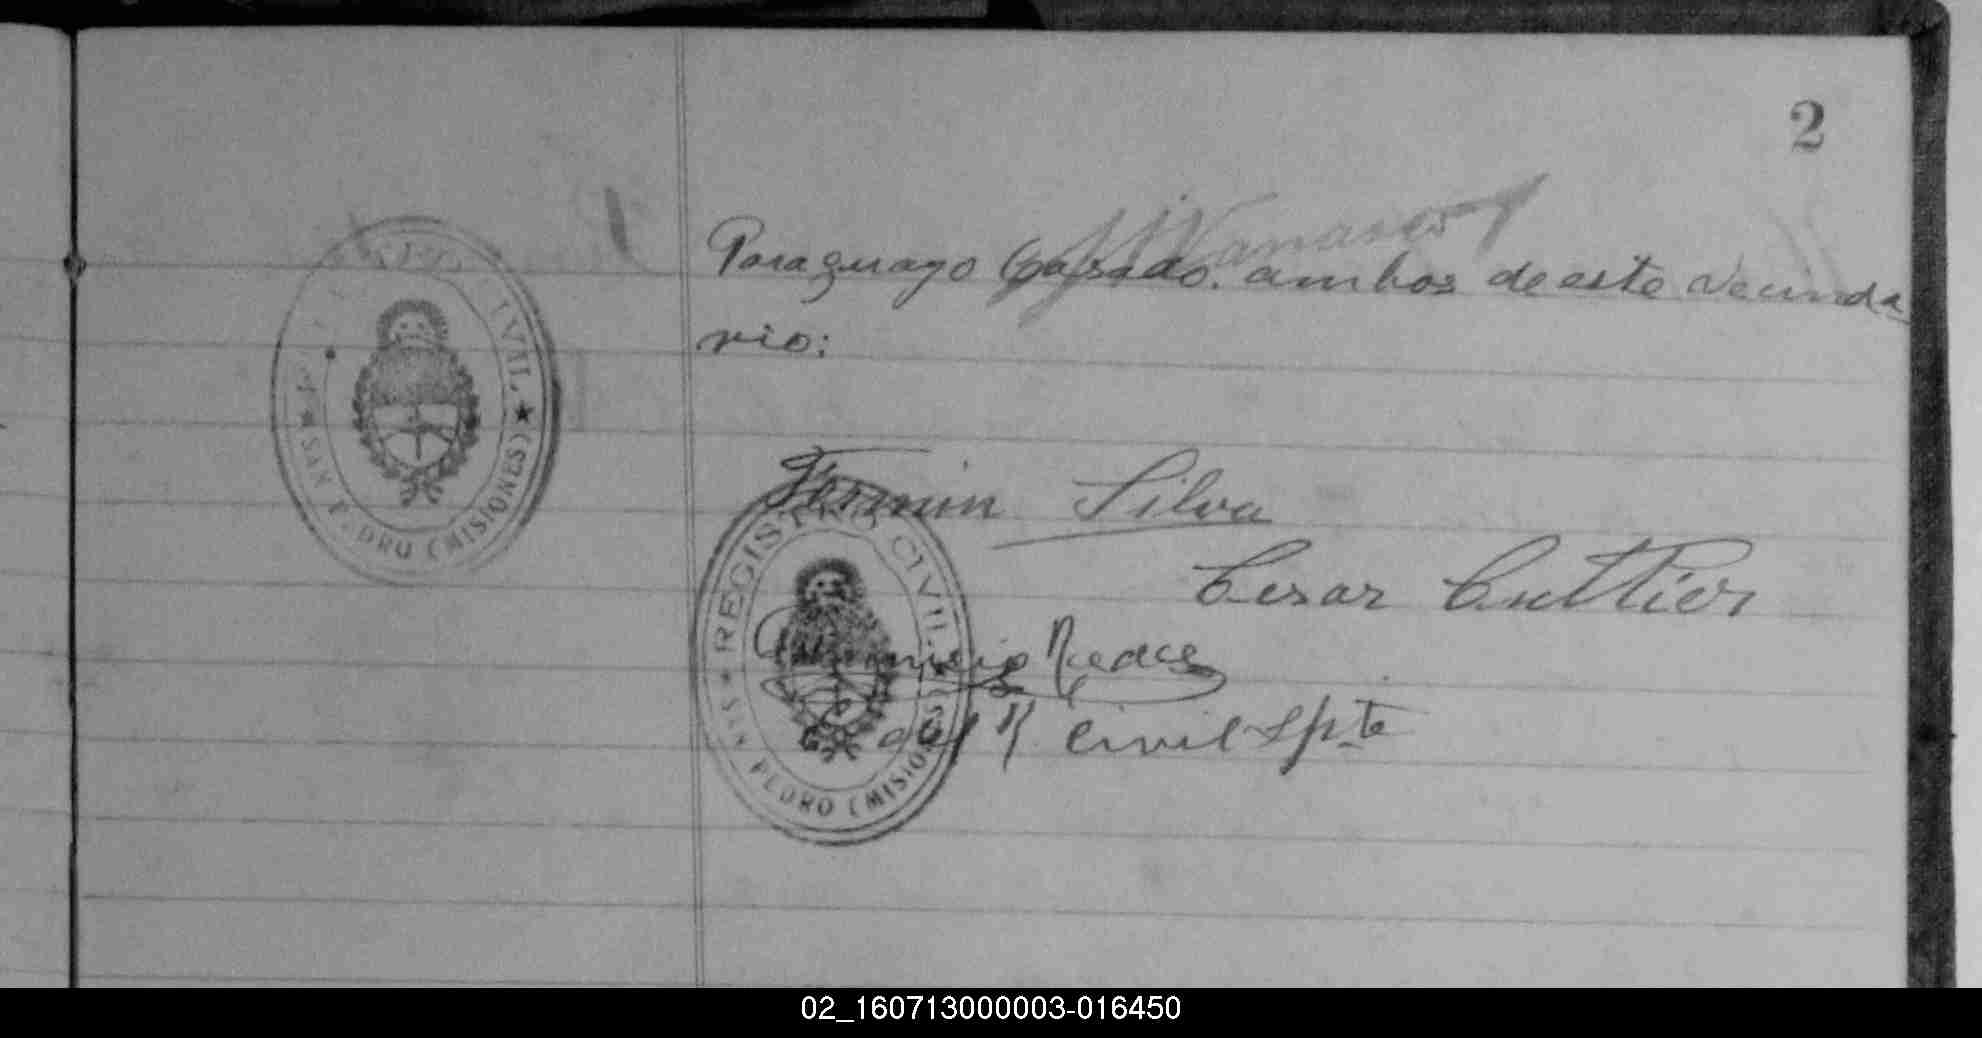 2
Paraguayo Casado. ambos de este vecinda
rio:
REGISTRO CIVIL
SAN PEDRO (MISIONES)
Fermin Silva
Cesar Cuttier
REGISTRO CIVIL
SAN PEDRO (MISIONES)
del R. Civil Spte
02_160713000003-016450